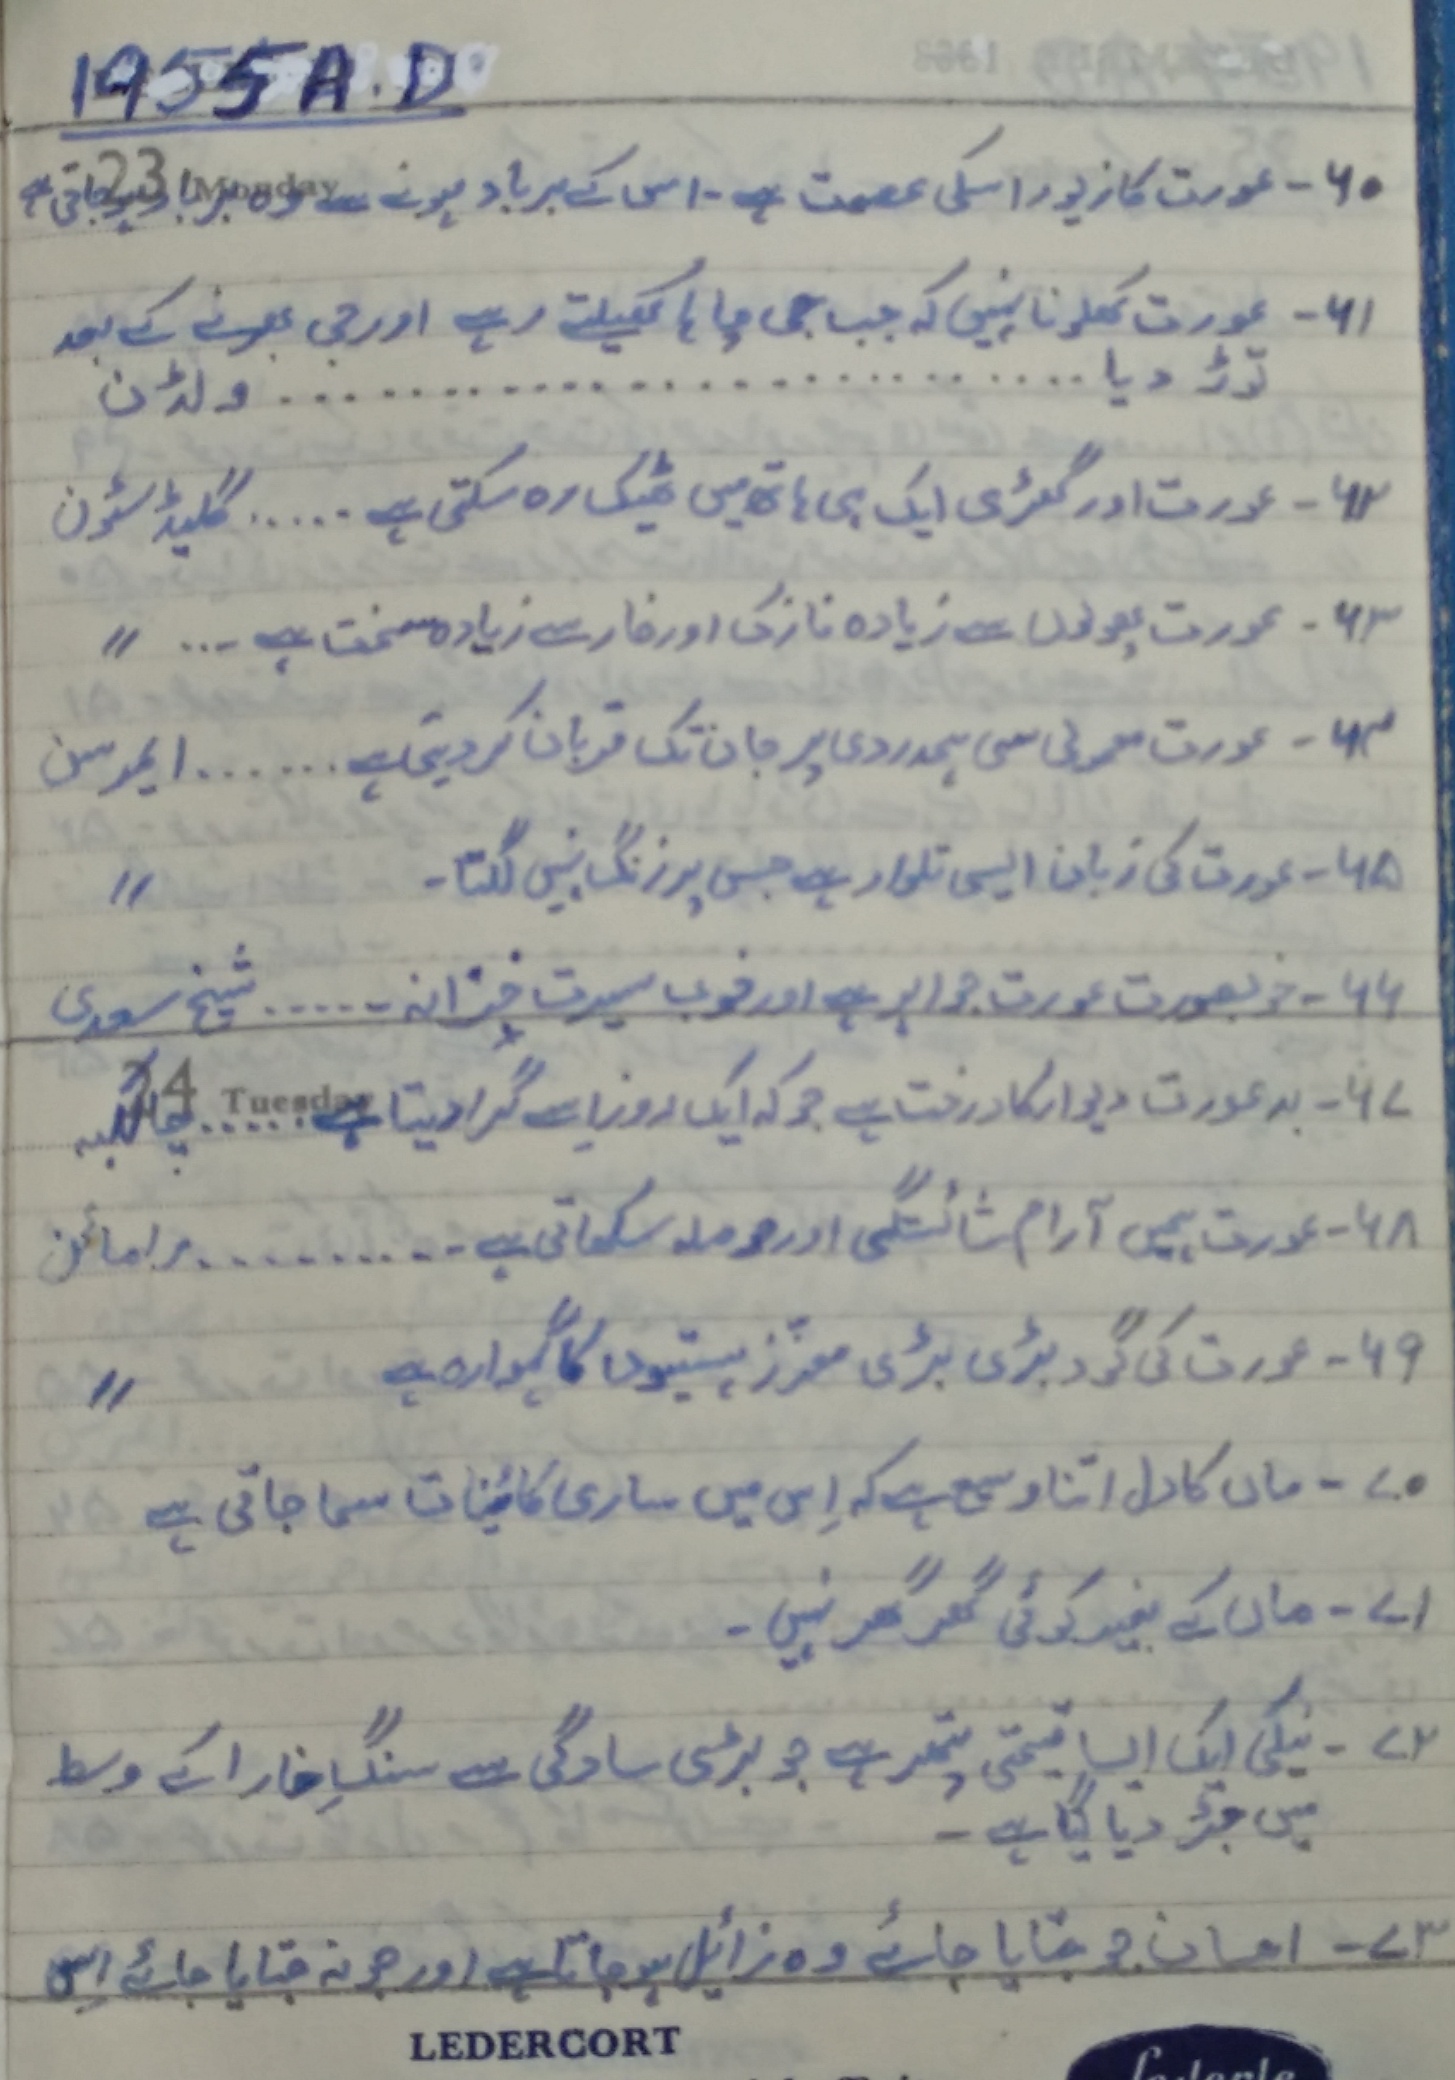 1955 A.D
23 Monday
۶۰- عورت کا زیور اسکی عصمت ہے۔ اسی کے برباد ہونے سے وہ برباد ہوجاتی ہے
۶۱- عورت کھلونا نہیں کہ جب جی چاہا کھیلتے رہے اور جی بھرنے کے بعد
توڑ دیا .......................... ولڈن
۶۲- عورت اور گھڑی ایک ہی ہاتھ میں ٹھیک رہ سکتی ہے ..... گلیڈسٹون
۶۳- عورت پھولوں سے زیادہ نازک اور خار سے زیادہ سخت ہے ... "
۶۴- عورت معمولی سی ہمدردی پر جان تک قربان کردیتی ہے ....... ایمرسن
۶۵- عورت کی زبان ایسی تلوار ہے جس پر زنگ نہیں لگتا۔ "
۶۶- خوبصورت عورت جواہر ہے اور خوب سیرت خزانہ ...... شیخ سعدی
24 Tuesday
۶۷- بد عورت دیوار کا درخت ہے جو کہ ایک روز اسے گرا دیتا ہے ......
۶۸- عورت ہمیں آرام شائستگی اور حوصلہ سکھاتی ہے ..........
۶۹- عورت کی گود بڑی بڑی معزز ہستیوں کا گہوارہ ہے "
۷۰- ماں کا دل اتنا وسیع ہے کہ اِس میں ساری کائینات سما جاتی ہے
۷۱- ماں کے بغیر کوئی گھر گھر نہیں۔
۷۲- نیکی ایک ایسا قیمتی پتھر ہے جو بڑی سادگی سے سنگِ خارا کے وسط
میں جڑ دیا گیا ہے۔
۷۳- احسان جو جتایا جائے وہ زائیل ہو جاتا ہے اور جو نہ جتایا جائے اِس
LEDERCORT
Lederle